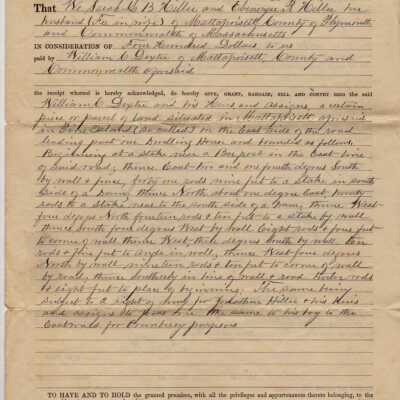 That We Sarah C B Hillie and Ebenezer R Hillie her
husband (Fee in wife) of Mattapoisett County of Plymouth
and Commonwealth of Massachusetts
IN CONSIDERATION OF Four Hundred Dollars to us
paid by William C Dexter of Mattapoisett, County and
Commonwealth aforesaid
the receipt whereof is hereby acknowledged, do hereby GIVE, GRANT, BARGAIN, SELL AND CONVEY unto the said
William C Dexter and his Heirs and assigns, a certain
piece or parcel of Land situated in Mattapoisett aforesaid
in (so called) on the East side of the road
leading past our Dwelling House and bounded as follows
Beginning at a stake near a Bar post in the East line
of said road; thence East-ten and one fourth degrees South
by wall + fence, forty one rods nine feet to a stake in south
side of a Dam; thence North about one degree East, twenty
rods to a stake near to the south side of a Dam; thence West-
four degrees North fourteen rods + ten feet to a stake by wall
thence South four degrees West by wall Eight rods + five feet
to corner of wall thence West three degrees South by wall ten
rods + five feet to angle in wall, thence West four degrees
North by wall nineteen rods + ten feet to corner of wall
by road, thence southerly in line of wall + road rods
+ eight feet to place of beginning. The same being
subject to a right of way for Hillie + his heirs
and assigns to pass the same to his bog to the
Eastward for Cranberry purposes
TO HAVE AND TO HOLD the granted premises, with all the privileges and appurtenances thereto belonging, to the